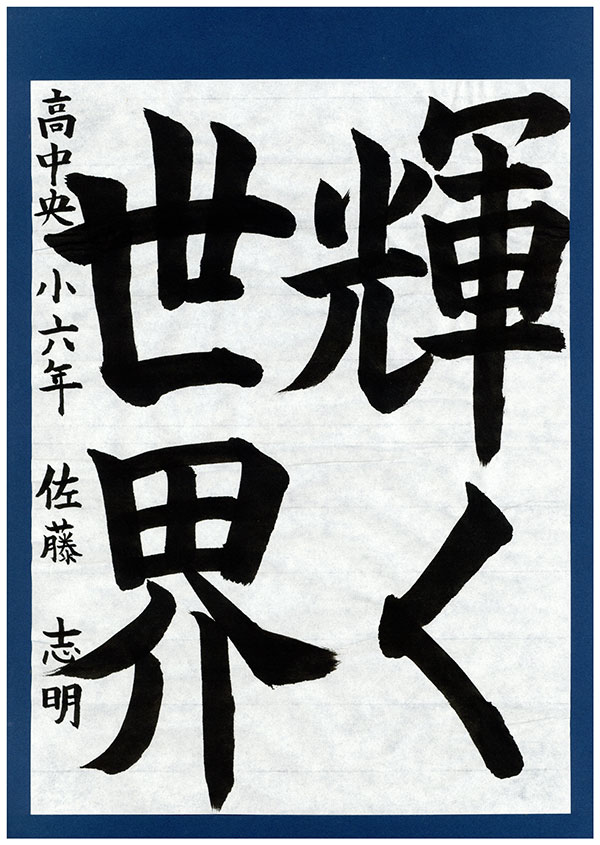 輝く
世界
高中央小六年 佐藤 志明